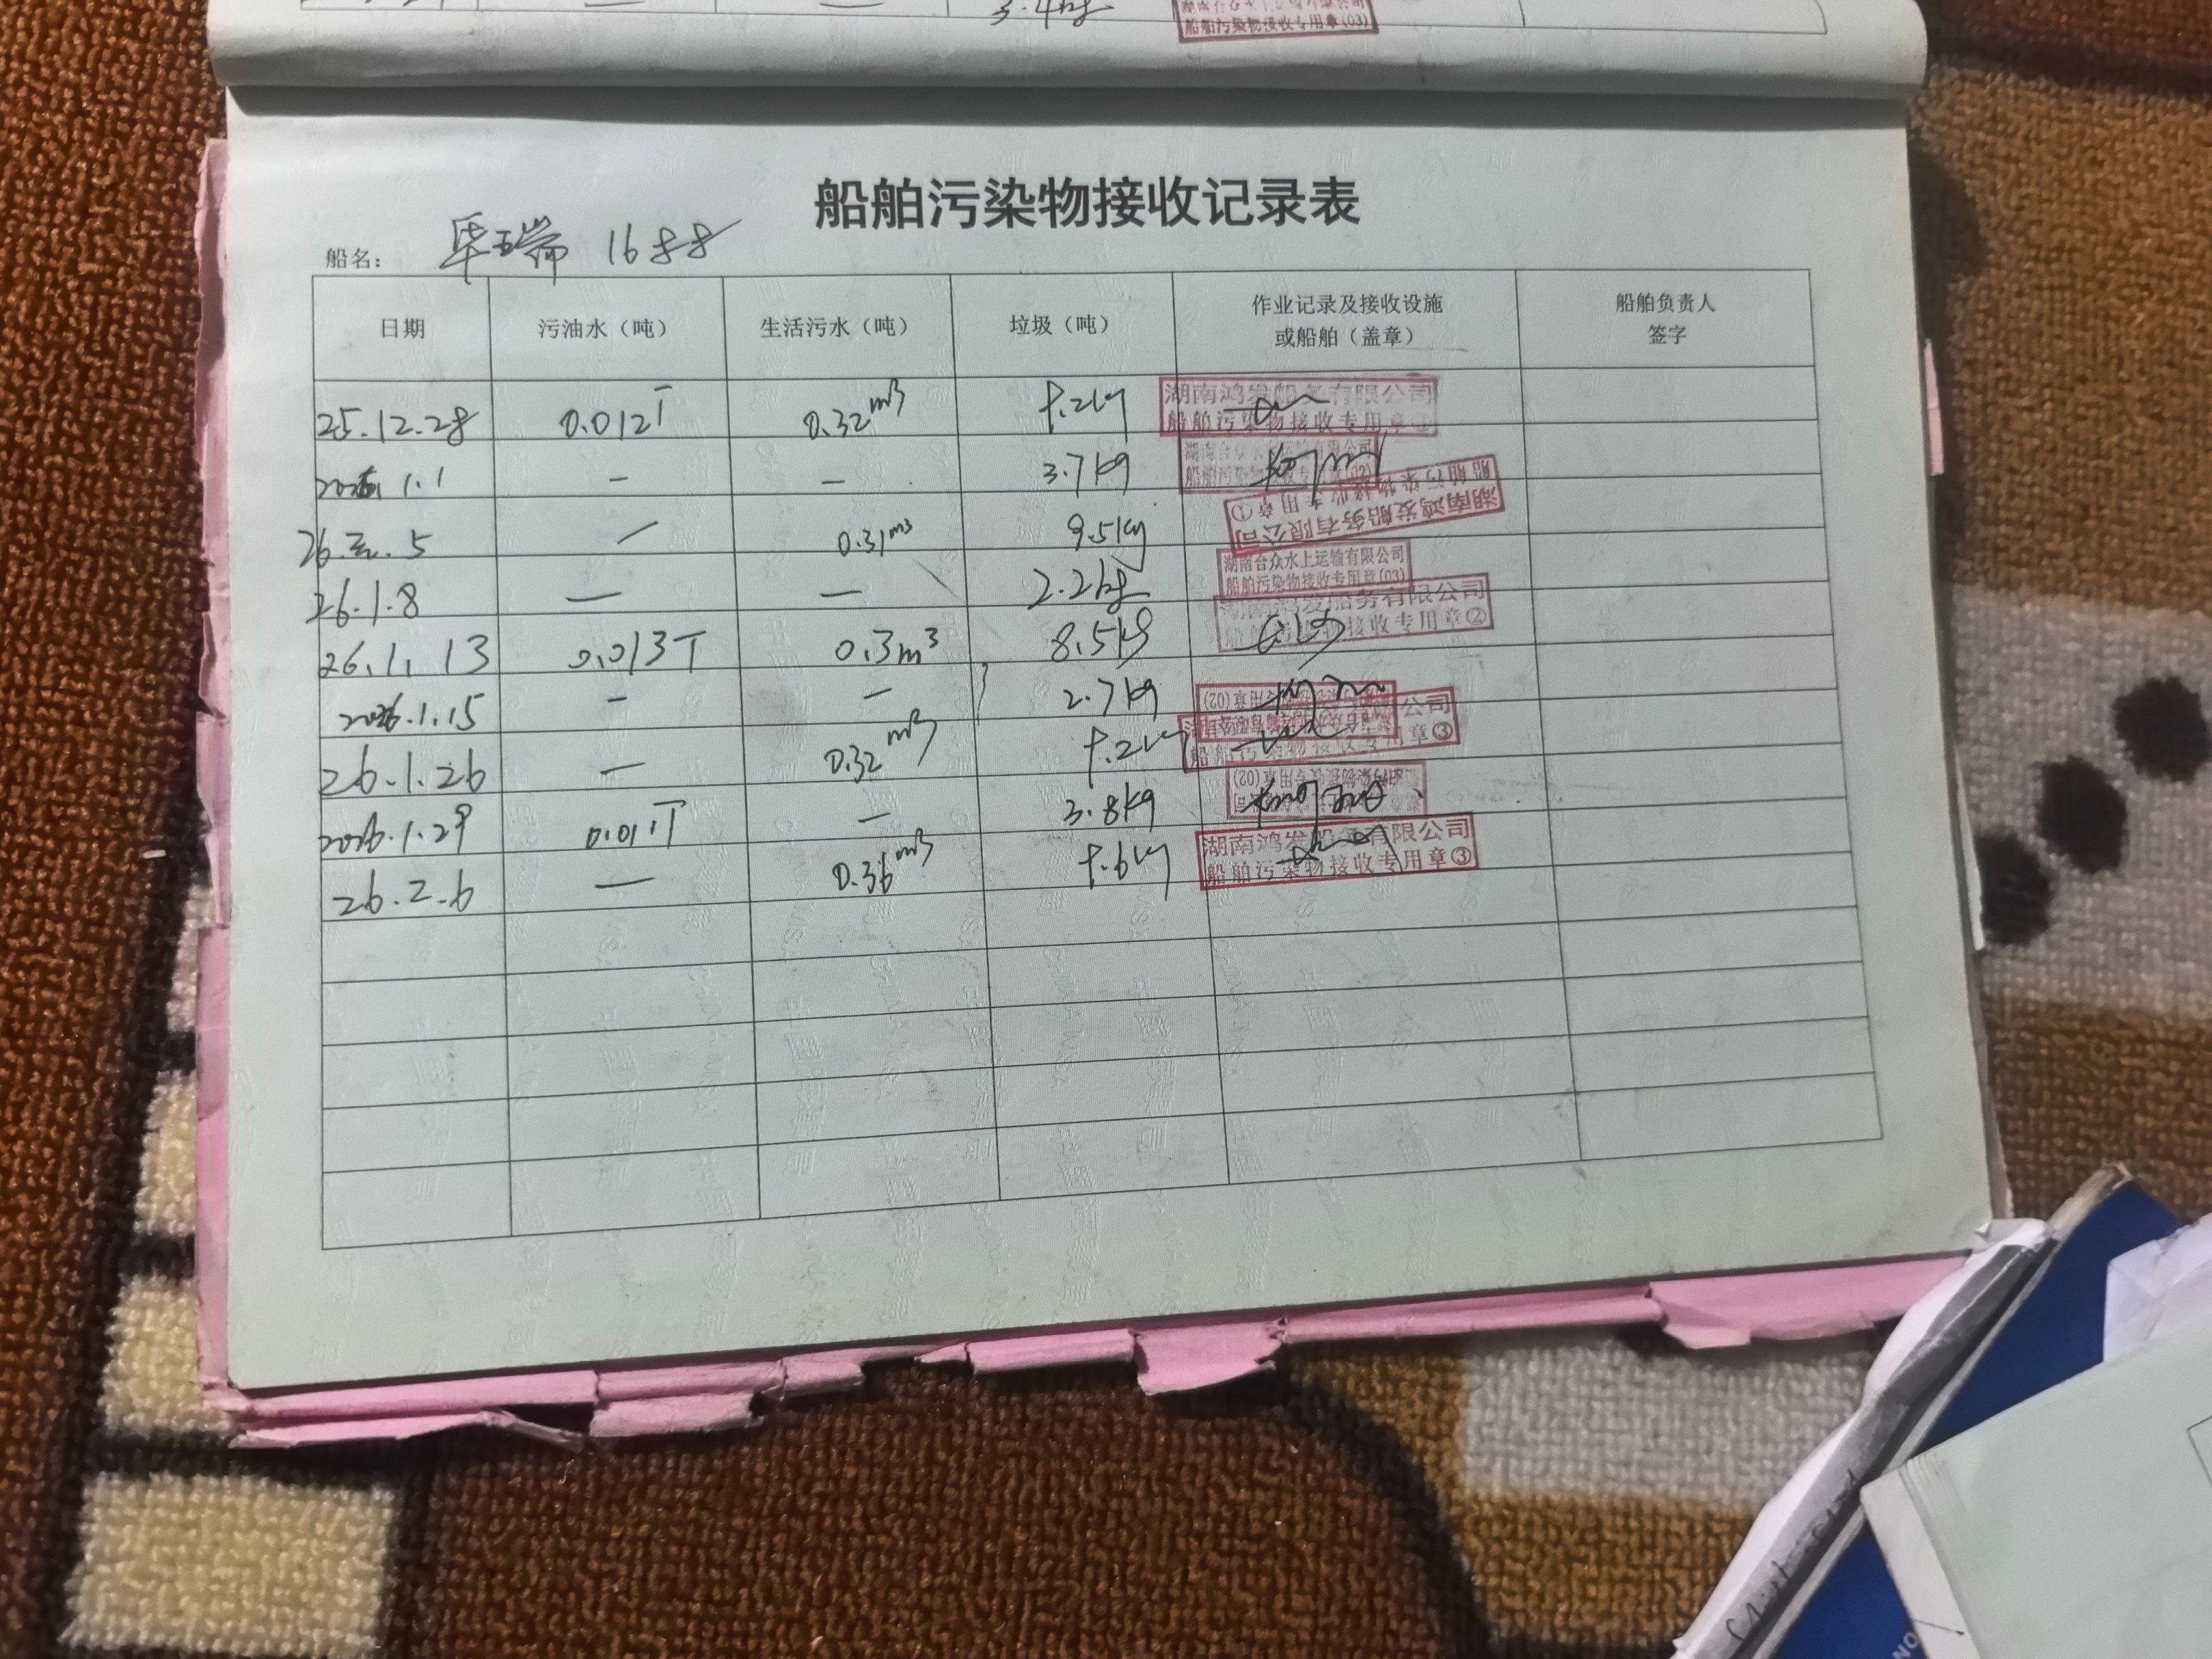 3.4kg
船舶污染物接收专用章(03)
船舶污染物接收记录表
船名: 华瑞 1688
日期 污油水(吨) 生活污水(吨) 垃圾(吨) 作业记录及接收设施或船舶(盖章) 船舶负责人签字
25.12.28 0.012T 0.32m³ 8.2kg 湖南鸿发船务有限公司 船舶污染物接收专用章
2026.1.1 — — 3.7kg
26.元.5 — 0.31m³ 9.5kg 湖南鸿发船务有限公司 船舶污染物接收专用章①
26.1.8 — — 2.2kg 湖南合众水上运输有限公司 船舶污染物接收专用章(03)
26.1.13 0.013T 0.3m³ 8.5kg 湖南鸿发船务有限公司 船舶污染物接收专用章②
2026.1.15 — — 2.7kg
26.1.26 — 0.32m³ 8.2kg 船舶污染物接收专用章③
2026.1.29 0.011T — 3.8kg
26.2.6 — 0.36m³ 8.6kg 湖南鸿发船务有限公司 船舶污染物接收专用章③